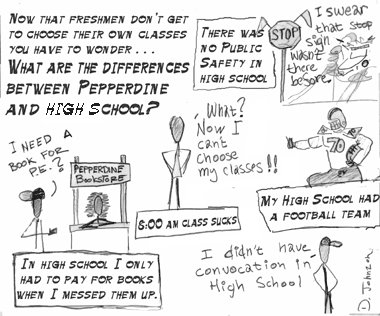 NOW THAT FRESHMEN DON'T GET
TO CHOOSE THEIR OWN CLASSES
YOU HAVE TO WONDER...
WHAT ARE THE DIFFERENCES
BETWEEN PEPPERDINE
AND HIGH SCHOOL?
THERE WAS
NO PUBLIC
SAFETY IN
HIGH SCHOOL
STOP
I swear
that stop
sign
wasn't
there
before.
I NEED A
BOOK FOR
P.E.?
PEPPERDINE
BOOKSTORE
IN HIGH SCHOOL I ONLY
HAD TO PAY FOR BOOKS
WHEN I MESSED THEM UP.
What?
Now I
can't
choose
my classes!!
8:00 AM CLASS SUCKS
70
MY HIGH SCHOOL HAD
A FOOTBALL TEAM
I didn't have
convocation in
High School
D. Johnson